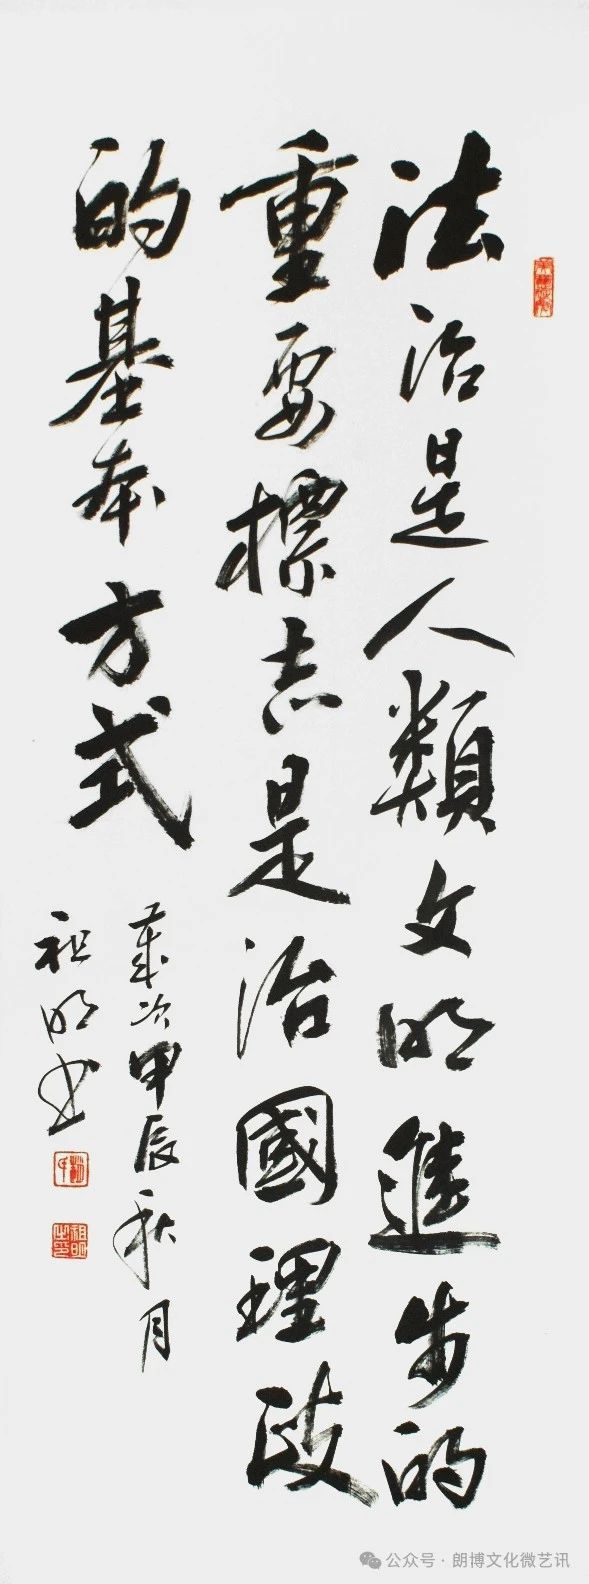 法治是人類文明進步的
重要標志是治國理政
的基本方式
歲次甲辰秋月
祖明書
祖明之印
公众号·朗博文化微艺讯